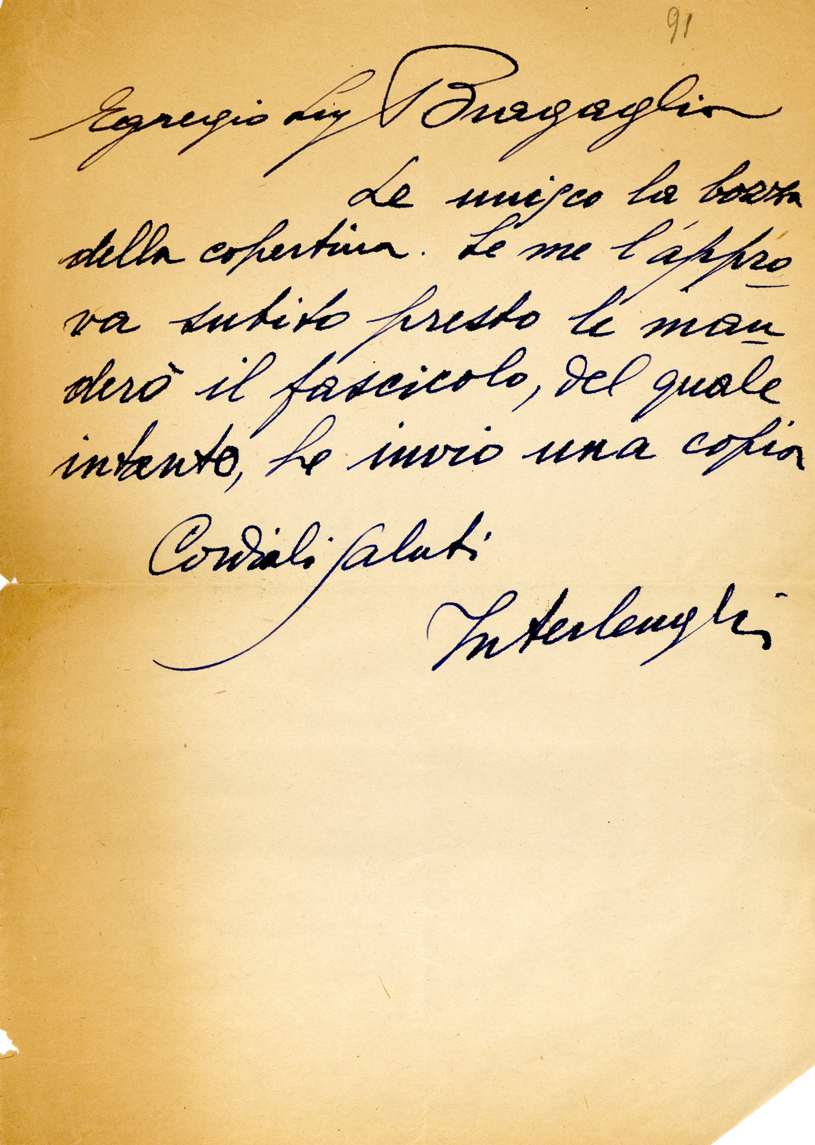 91
Egregio Sig Bragaglia
Le unisco la bozza
della copertina. Se me l'appro
va subito presto le man
derò il fascicolo, del quale
intanto, Le invio una copia
Cordiali saluti
Interlenghi